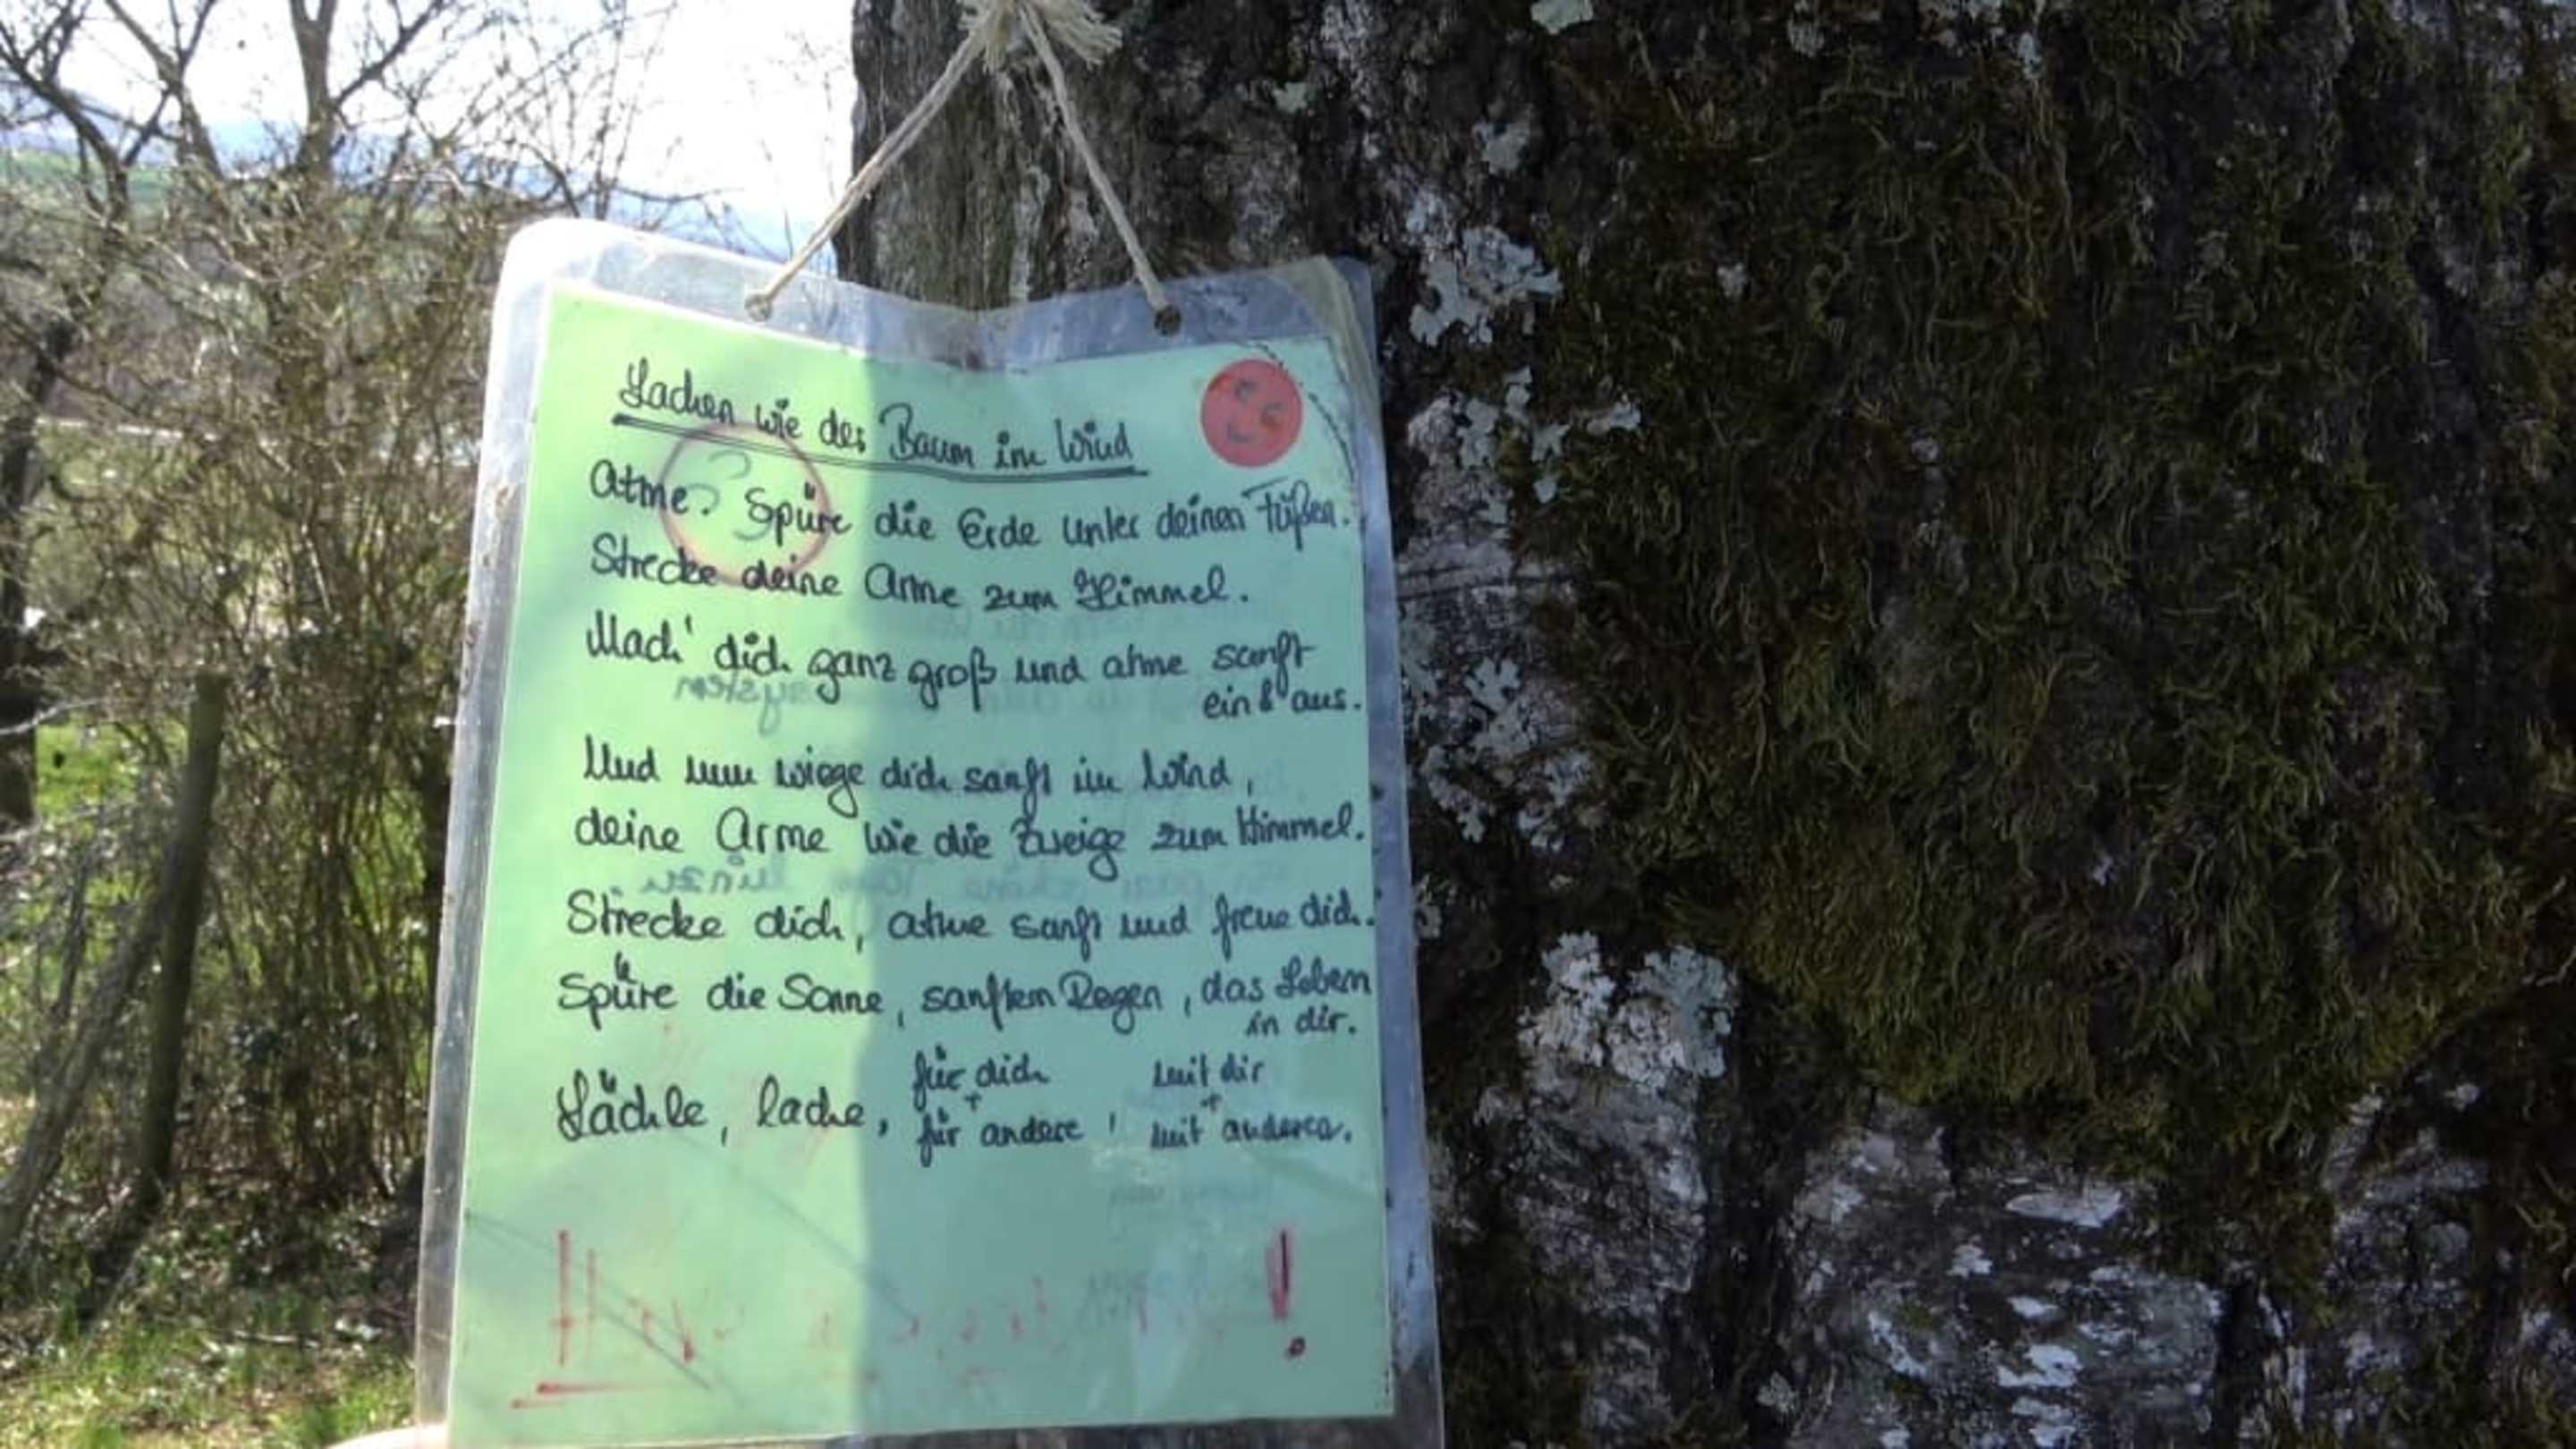 Lachen wie der Baum im Wind
Atme. Spüre die Erde unter deinen Füßen.
Strecke deine Arme zum Himmel.
Mach' dich ganz groß und atme sanft
ein & aus.
Und nun wiege dich sanft im Wind,
deine Arme wie die Zweige zum Himmel.
Strecke dich, atme sanft und freue dich.
Spüre die Sonne, sanften Regen, das Leben
in dir.
Lächle, lache, für dich + für andere, mit dir + mit anderen.
!